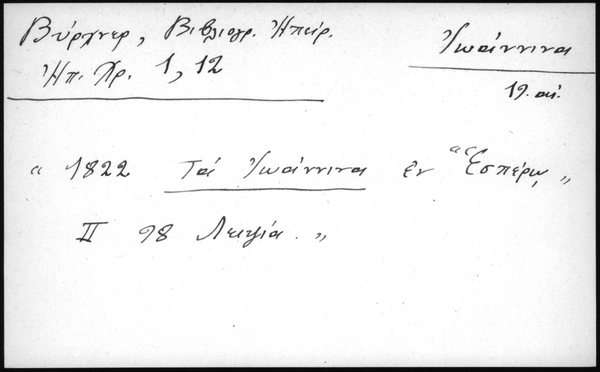 Βύργνερ, Βιβλιογρ. Ἠπείρ.
Ἠπ. Χρ. 1, 12
Ἰωάννινα
19. αἰ.
" 1822 Τά Ἰωάννινα ἐν "Ἑσπέρῳ"
II 98 Λειψία. "